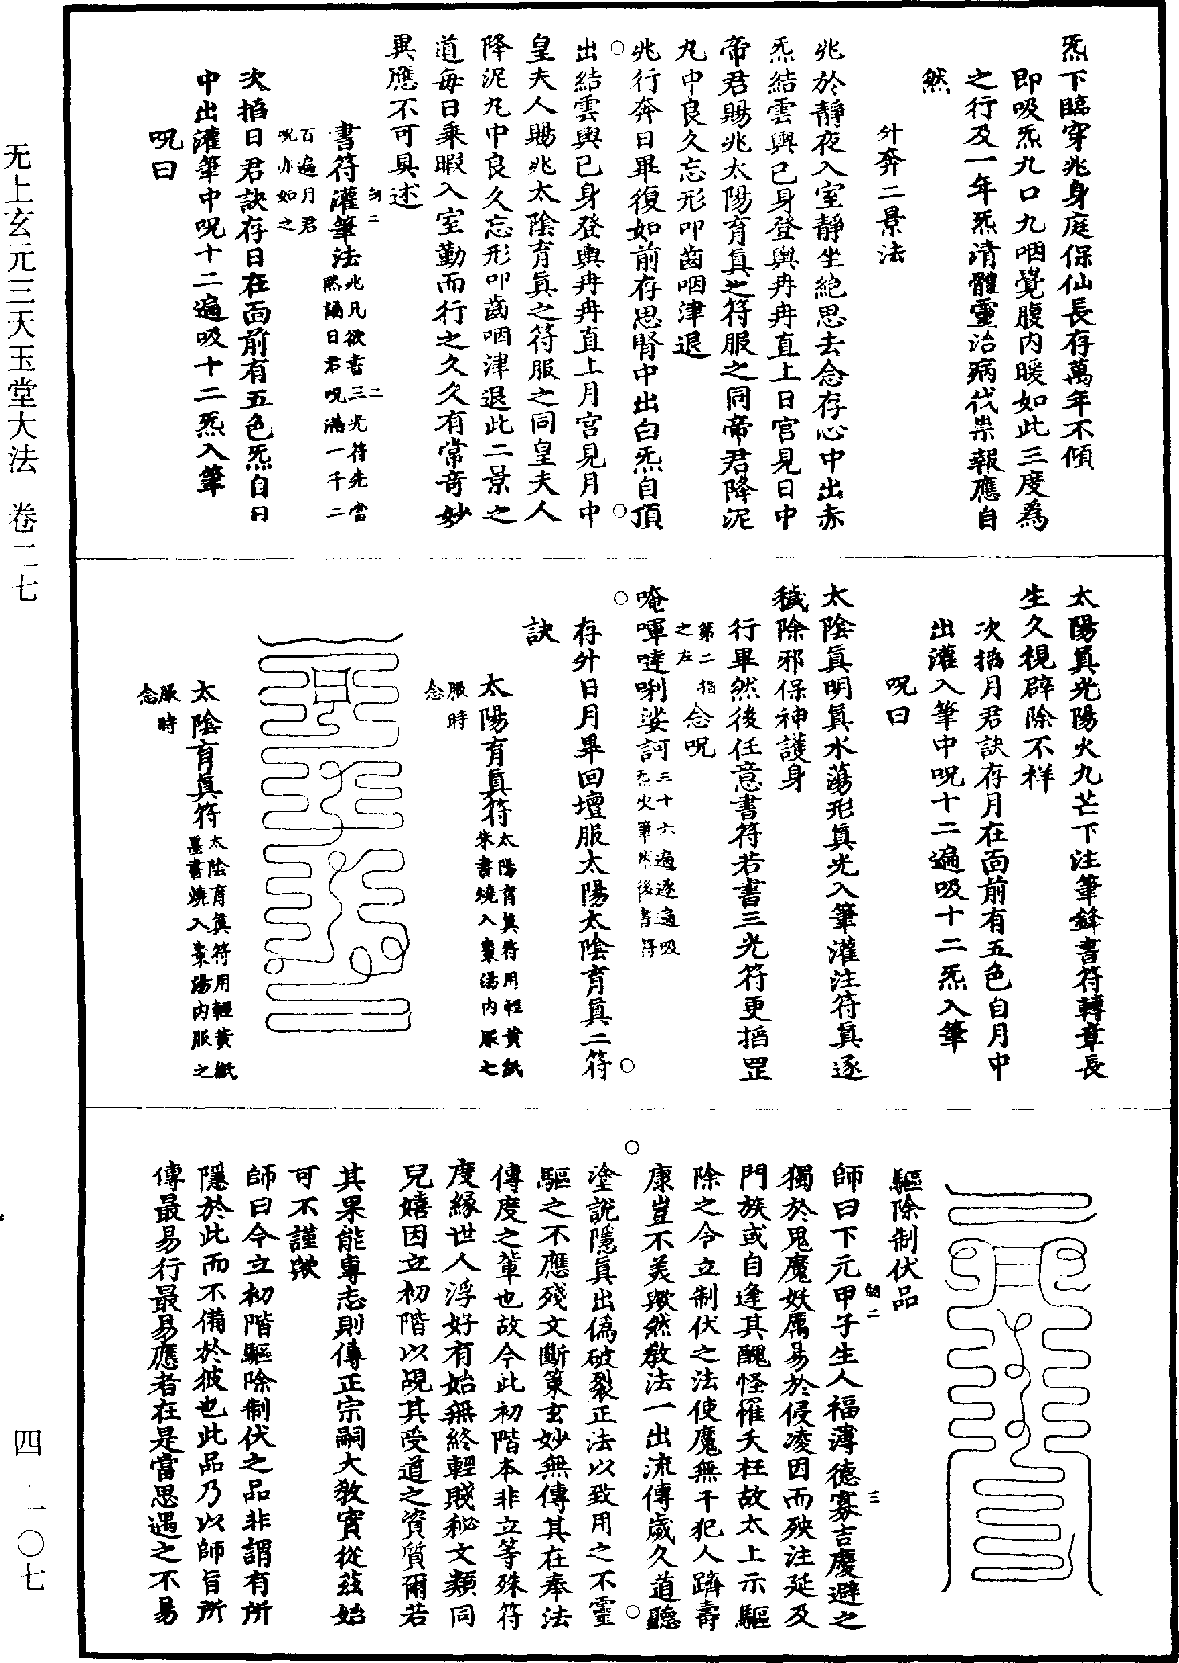 炁下臨穿兆身庭保仙長存萬年不傾
即吸炁九口九咽覺腹内暖如此三度為
之行及一年炁清體靈治病伐祟報應自
然
外奔二景法
兆於靜夜入室靜坐絶思去念存心中出赤
炁結雲輿已身登輿冉冉直上日宮見日中
帝君賜兆太陽育真之符服之同帝君降泥
丸中良久忘形叩齒咽津退
兆行奔日畢復如前存思腎中出白炁自頂
出結雲輿已身登輿冉冉直上月宮見月中
皇夫人賜兆太陰育真之符服之同皇夫人
降泥丸中良久忘形叩齒咽津退此二景之
道每日乘暇入室勤而行之久久有常奇妙
異應不可具述
書符灌筆法兆凡欲書三光符先當
熙誦日君呪滿一千二
百遍月君
呪亦如之
次掐日君訣存日在面前有五色炁自日
中出灌筆中呪十二遍吸十二炁入筆
呪曰
太陽真光陽火九芒下注筆鋒書符轉章長
生久視辟除不祥
次掐月君訣存月在面前有五色自月中
出灌入筆中呪十二遍吸十二炁入筆
呪曰
太陰真明真水蕩形真光入筆灌注符真逐
穢除邪保神護身
行畢然後任意書符若書三光符更掐罡
第二指
之左
念呪
唵嗶㗚唎娑訶三十六遍逐遍吸
炁火筆然後書符
存外日月畢回壇服太陽太陰育真二符
訣
太陽育真符太陽育真符用輕黄紙
朱書燒入棗湯内服之
服時
念
太陰育真符太陰育真符用輕黄紙
墨書燒入棗湯内服之
服時
念
驅除制伏品
師曰下元甲子生人福薄德寡吉慶避之
獨於鬼魔妖厲易於侵凌因而殃注延及
門族或自逢其醜怪罹夭枉故太上示驅
除之令立制伏之法使魔無干犯人躋壽
康豈不美歟然教法一出流傳歲久道聽
塗説隱真出僞破裂正法以致用之不靈
驅之不應殘文斷策玄妙無傳其在奉法
傳度之輩也故今此初階本非立等殊符
度緣世人浮好有始無終輕賤秘文類同
兒嬉因立初階以覘其受道之資質爾若
其果能專志則傳正宗嗣大教實從茲始
可不謹歟
師曰今立初階驅除制伏之品非謂有所
隱於此而不備於彼也此品乃以師旨所
傳最易行最易應者在是當思遇之不易
无上玄元三天玉堂大法 卷二七
四 一〇七